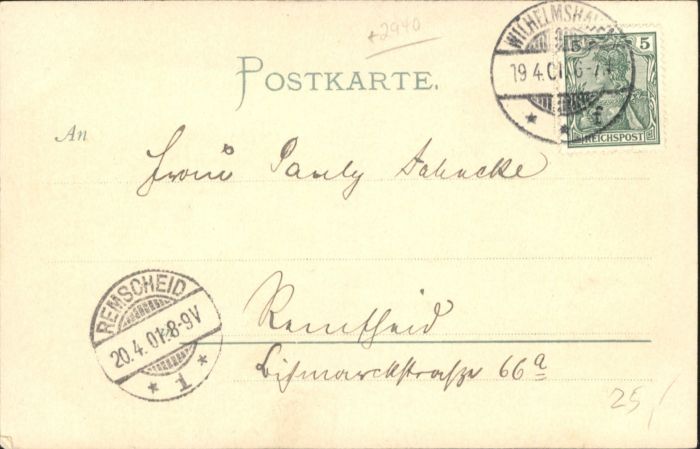 +2940
POSTKARTE.
WILHELMSHAVEN
19 4. 01. 6-7
* * f
5 5
REICHSPOST
An
Frau Pauly Dahncke
REMSCHEID
20.4.01. 8-9V
* 1 *
Remscheid
Bismarckstraße 66a
25